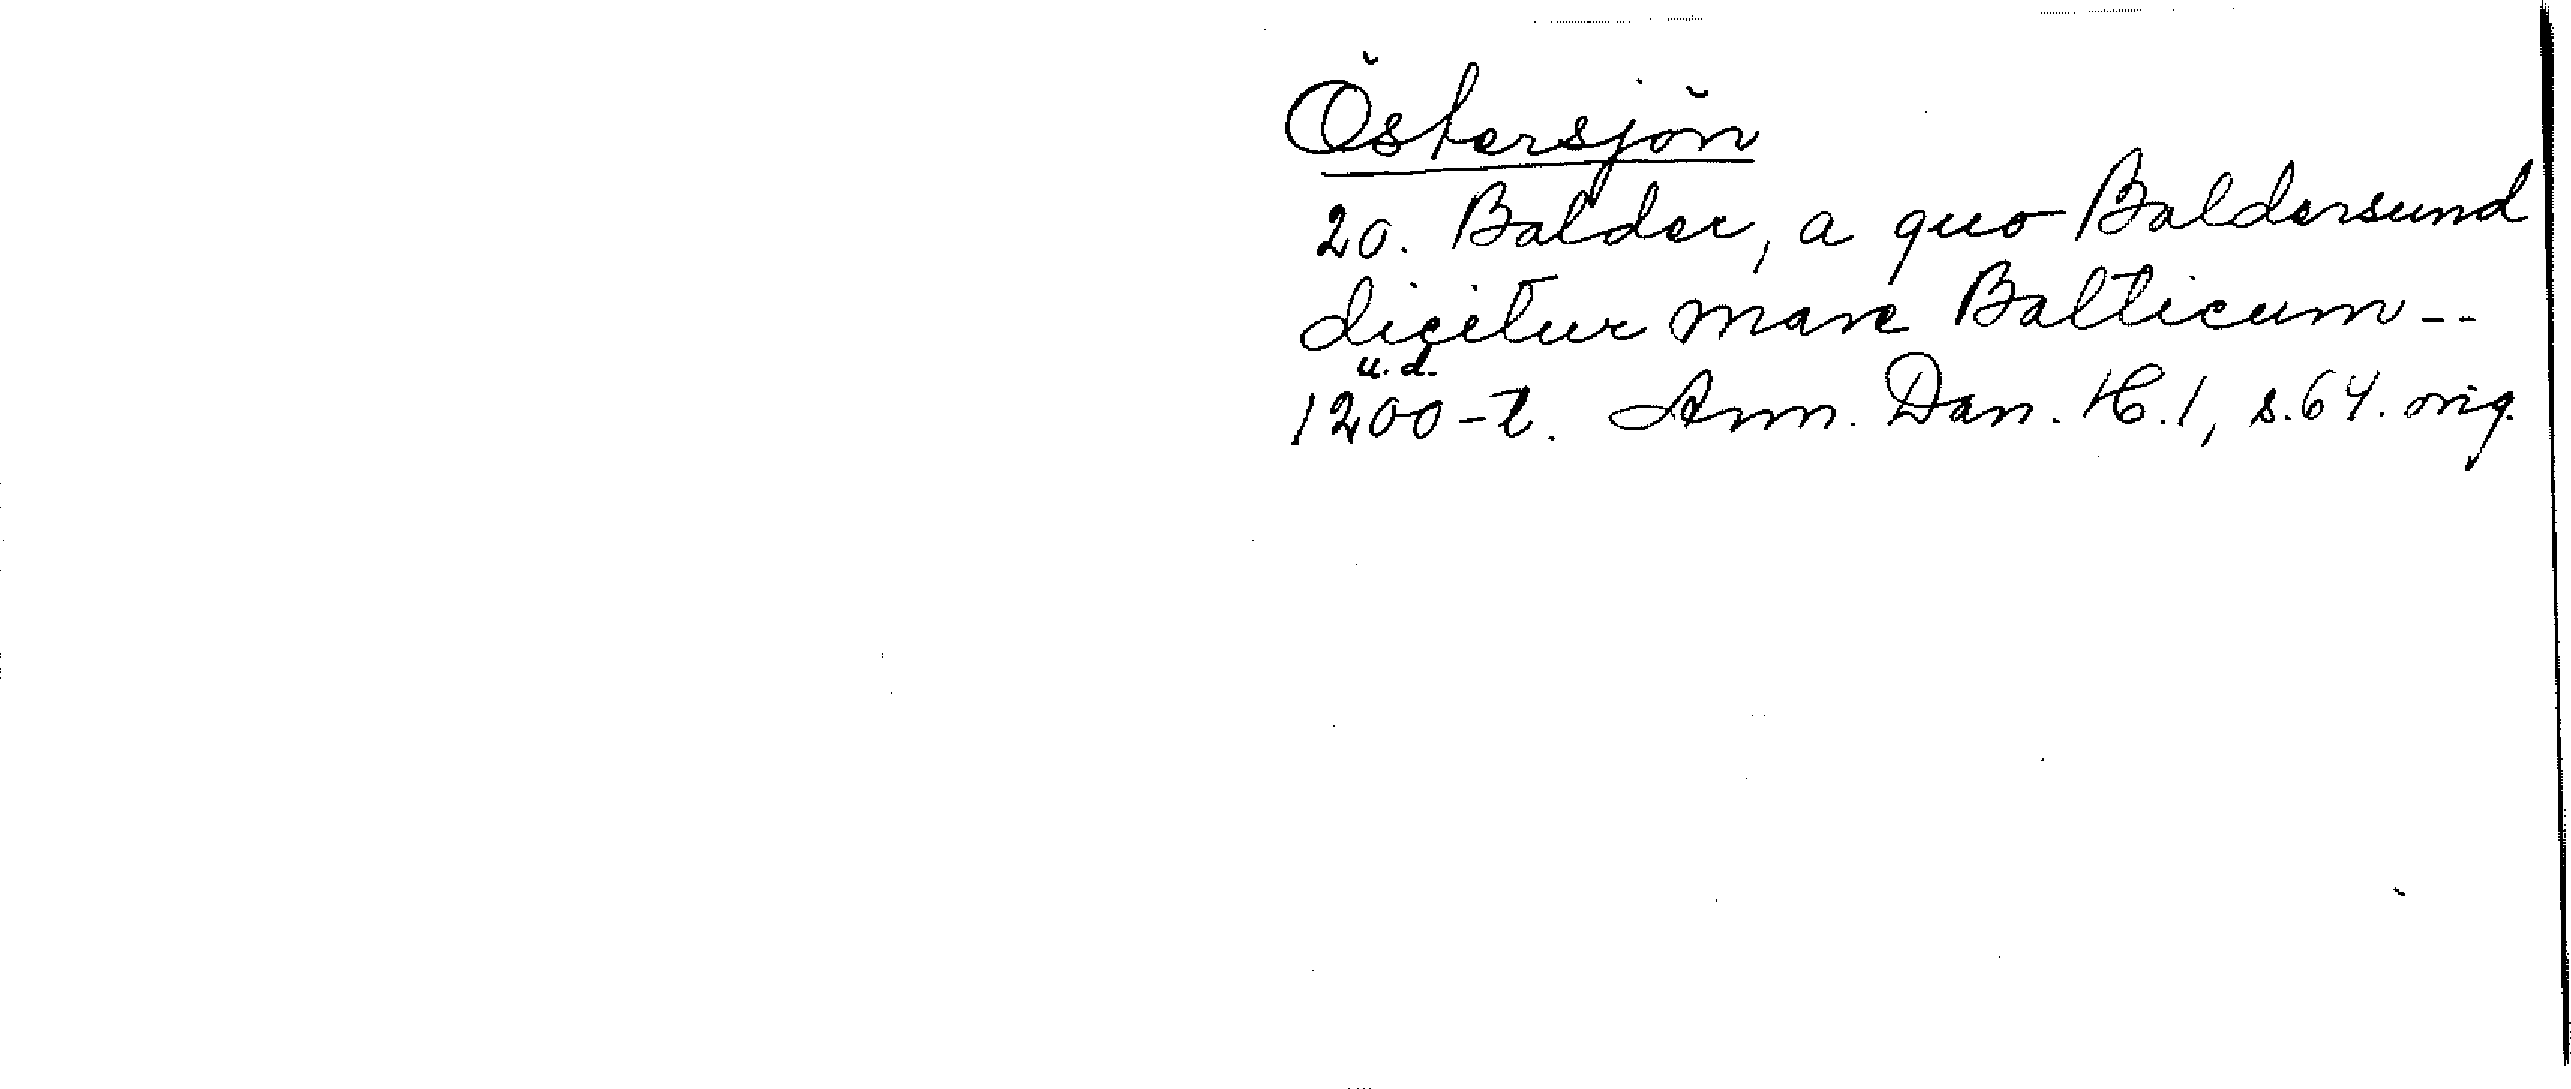 Östersjön
20. Balder, a quo Baldersund
dicitur mare Balticum --
u.d.
1200-t. Ann. Dan. H. 1, s. 64. orig.